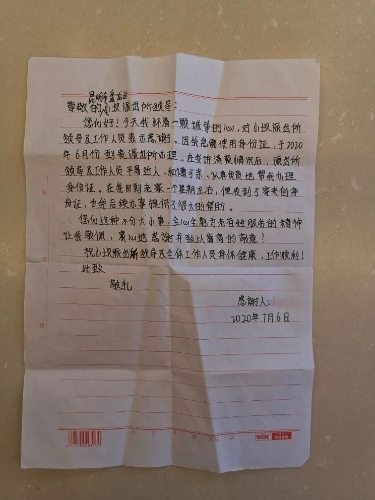 昆明市盘龙区
尊敬的小坝派出所领导:
您们好!今天我怀着一颗诚挚的心,对小坝派出所
领导及工作人员表示感谢。因我急需使用身份证,于2020
年6月份到贵派出所办理,在我讲清楚情况后,派出所
领导及工作人员平易近人,和蔼可亲,认真负责地帮我办理
身份证。在我回到老家一个星期左右,便收到了寄来的身
份证,也给后续办事提供了很大的帮助。
您们这种不分大小事,全心全意为老百姓服务的精神
让我敬佩,衷心地感谢并致以崇高的敬意!
祝小坝派出所领导及全体工作人员身体健康,工作顺利!
此致
敬礼
感谢人:
2020年7月6日